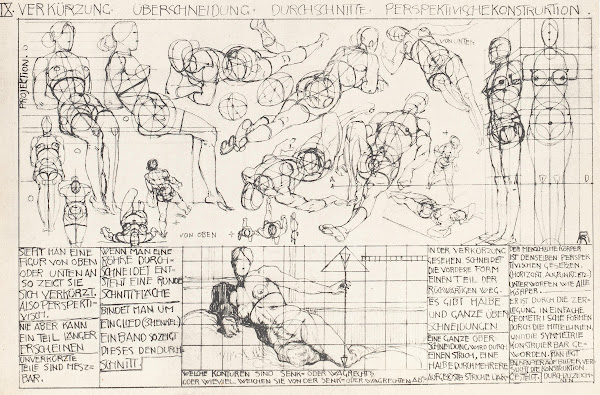 IX. VERKÜRZUNG · ÜBERSCHNEIDUNG · DURCHSCHNITTE · PERSPEKTIVISCHE KONSTRUKTION.
PROJEKTION:
VON UNTEN
VON OBEN
SIEHT MAN EINE
FIGUR VON OBEN
ODER UNTEN AN
SO ZEIGT SIE
SICH VERKÜRZT.
ALSO PERSPEKTI-
VISCH.
NIE ABER KANN
EIN TEIL LÄNGER
ERSCHEINEN
UNVERKÜRZTE
TEILE SIND MESZ-
BAR.
WENN MAN EINE
RÖHRE DURCH-
SCHNEIDET ENT-
STEHT EINE RUNDE
SCHNITTFLÄCHE
BINDET MAN UM
EIN GLIED (SCHENKEL)
EIN BAND SO ZEIGT
DIESES DEN DURCH-
SCHNITT
WELCHE KONTUREN SIND SENK- ODER WAGRECHT?
ODER WIEVIEL WEICHEN SIE VON DER SENK- ODER WAGRECHTEN AB?
IN DER VERKÜRZUNG
GESEHEN SCHNEIDET
DIE VORDERE FORM
EINEN TEIL DER
RÜCKWÄRTIGEN WEG.
ES GIBT HALBE
UND GANZE ÜBER-
SCHNEIDUNGEN
EINE GANZE ÜBER-
SCHNEIDUNG WIRD DURCH
EINEN STRICH, EINE
HALBE DURCH MEHRERE
STRICHE
DER MENSCHLICHE KÖRPER
IST DENSELBEN PERSPEK-
TIVISCHEN GESETZEN
(HORIZONT, AUGPUNKT ETC.)
UNTERWORFEN WIE ALLE
KÖRPER.
ER IST DURCH DIE ZER-
LEGUNG IN EINFACHE
GEOMETRISCHE FORMEN
DURCH DIE MITTELLINIEN,
UND DIE SYMMETRIE
KONSTRUIERBAR GE-
WORDEN. MAN LEGT
DIE KONSTRUKTION